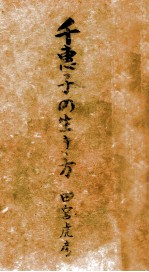 千恵子の生き方
田宮虎彦